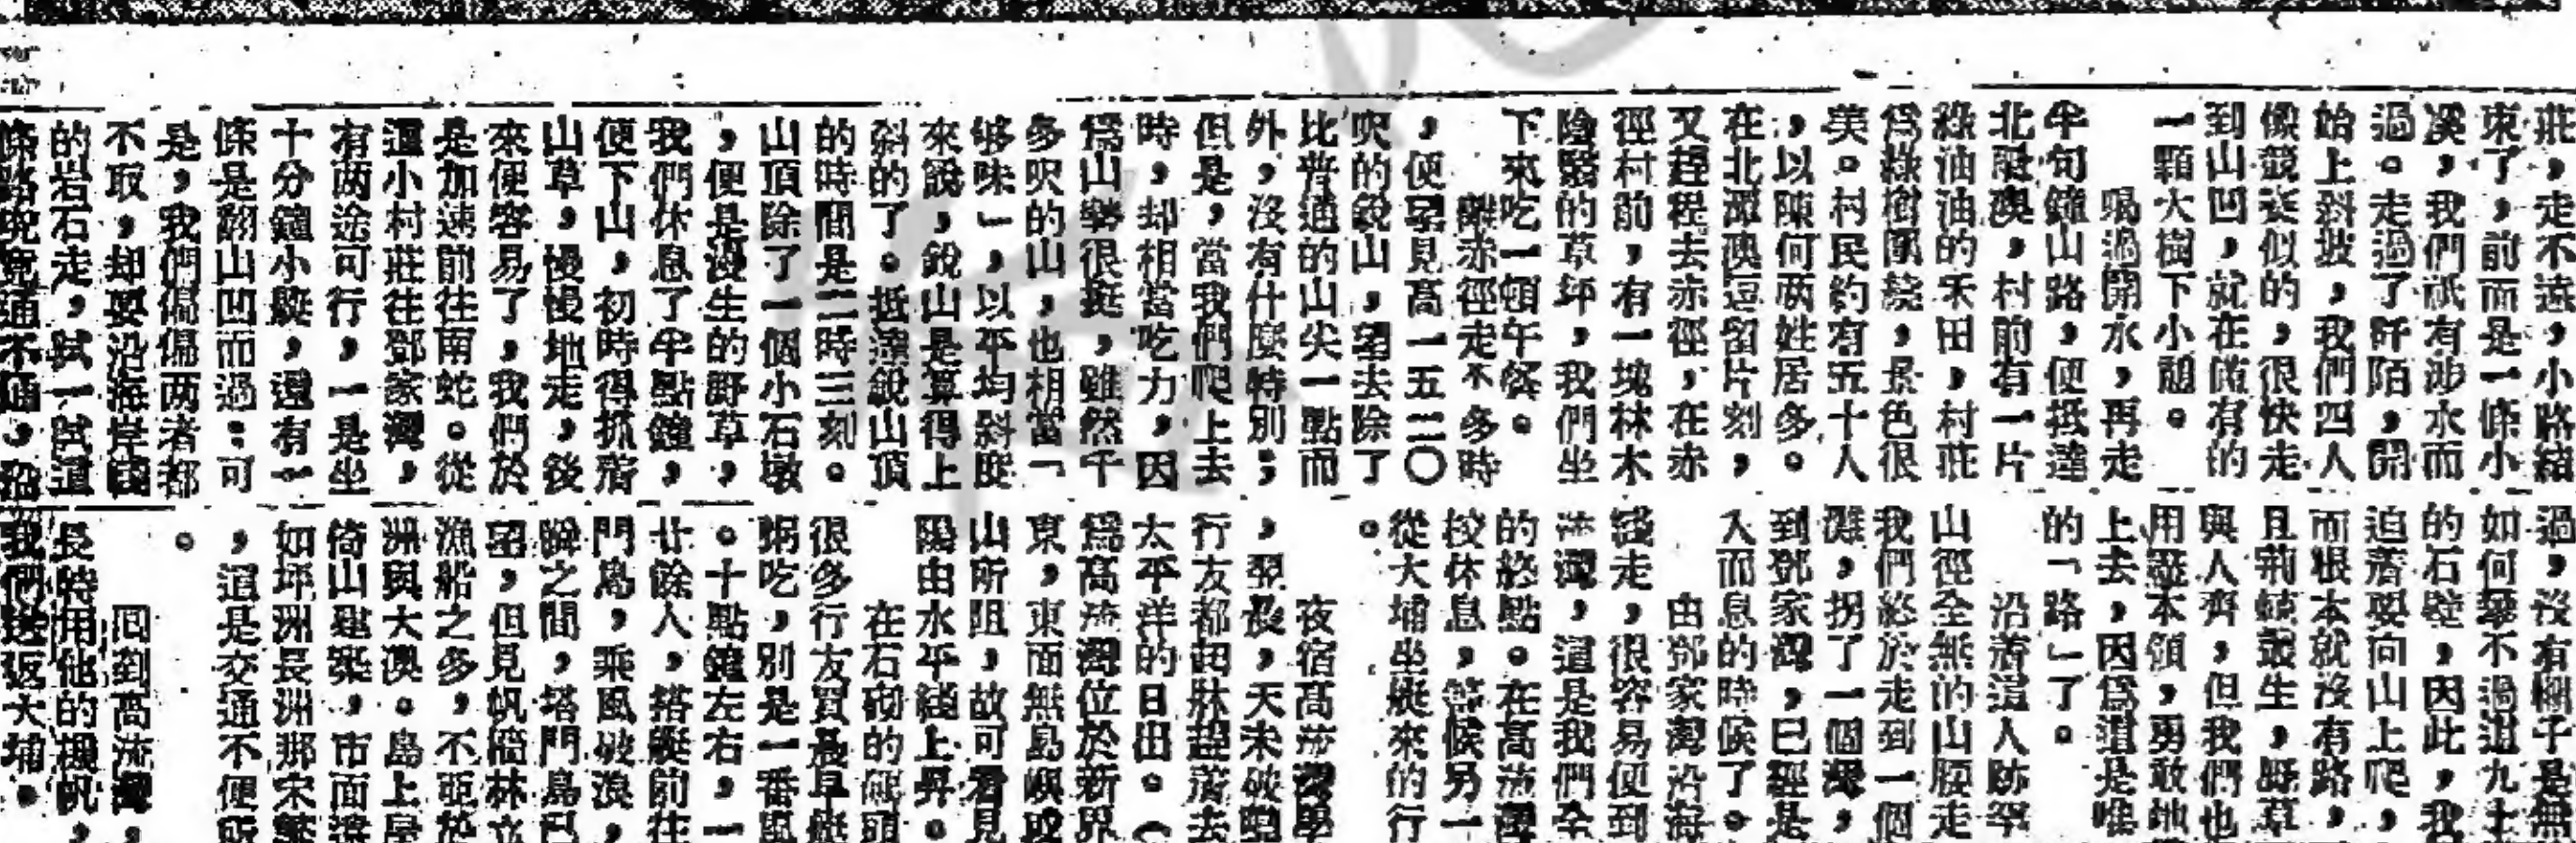 莊，走不遠，小路結
束了，前而是一條小
溪，我們祇有涉水而
過。走過了阡陌，開
始上斜坡，我們四人
像競走似的，很快走
到山凹，就在僅有的
一顆大樹下小憩。
喝過開水，再走
半句鐘山路，便抵達
北潭澳，村前有一片
綠油油的禾田，村莊
爲綠樹圍繞，景色很
美。村民約有五十人
，以陳何两姓居多。
在北潭澳逗留片刻，
又趕程去赤徑，在赤
徑村前，有一塊林木
陰翳的草坪，我們坐
下來吃一頓午餐。
離赤徑走不多時
，便望見高一五二〇
呎的銳山，望去除了
比普通的山尖一點而
外，沒有什麼特別；
但是，當我們爬上去
時，却相當吃力，因
爲山勢很挺，雖然千
多呎的山，也相當「
够味」，以平均斜度
來說，銳山是算得上
斜的了。抵達銳山頂
的時間是二時三刻。
山頂除了一個小石墩
，便是漫生的野草，
我們休息了半點鐘，
便下山，初時得抓着
山草，慢慢地走，後
來便容易了，我們於
是加速前往南蛇。從
這小村莊往鄧家灣，
有两途可行，一是坐
十分鐘小艇，還有一
條是翻山凹而過；可
是，我們偏偏两者都
不取，却要沿海岸
的岩石走，試一試這
條路究竟通不通，沿
過，沒有梯子是無
如何攀不過這九十
的石壁，因此，我
迫着要向山上爬，
而根本就沒有路，
且荆棘叢生，野草
與人齊，但我們也
用盡本領，勇敢地
上去，因爲這是唯
的「路」了。
沿着這人跡罕
山徑全無的山腰走
我們終於走到一個
灘，拐了一個灣，
到鄧家灣，已經是
入而息的時候了。
由鄧家灣沿海
綫走，很容易便到
流灣，這是我們全
的終點。在高流灣
校休息，等候另一
從大埔坐艇來的行
。
夜宿高流灣學
，翌晨，天未破曉
行友都起牀趕着去
太平洋的日出。（
爲高流灣位於新界
東，東面無島嶼或
山所阻，故可看見
陽由水平綫上昇。
在石砌的碼頭
很多行友買晨早艇
粥吃，別是一番風
。十點鐘左右，一
廿餘人，搭艇前往
門島，乘風破浪，
瞬之間，塔門島已
望，但見帆檣林立
漁船之多，不亞於
洲與大澳。島上房
倚山建築，市面
如坪洲長洲那宋繁
，這是交通不便所
。
囘到高流灣，
長特用他的機帆，
我們送返大埔。